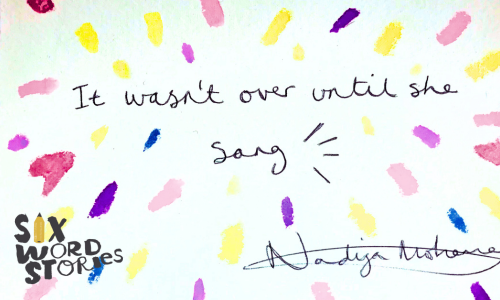 It wasn't over until she
sang
SIX
WORD
STORIES
Nadiya